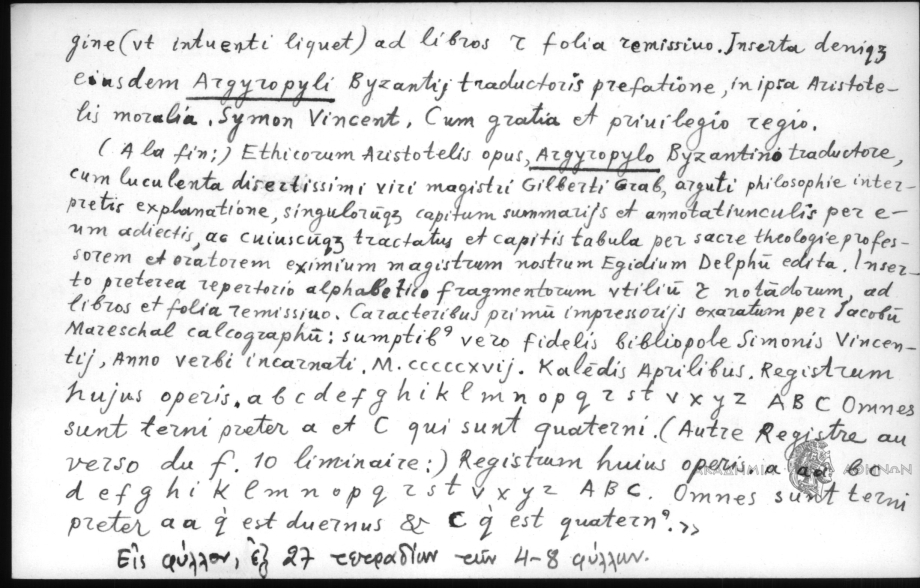 gine (vt intuenti liquet) ad libros ⁊ folia remissiuo. Inserta deniqꝫ
eiusdem Argyropyli Byzantij traductoris prefatione, in ipsa Aristote-
lis moralia. Symon Vincent. Cum gratia et priuilegio regio.
(A la fin:) Ethicorum Aristotelis opus, Argyropylo Byzantino traductore,
cum luculenta disertissimi viri magistri Gilberti Crab, arguti philosophie inter-
pretis explanatione, singulorūqꝫ capitum summarijs et annotatiunculis per e-
um adiectis, ac cuiuscūqꝫ tractatus et capitis tabula per sacre theologie profes-
sorem et oratorem eximium magistrum nostrum Egidium Delphū edita. Inser-
to preterea repertorio alphabetico fragmentorum vtiliū ⁊ notādorum, ad
libros et folia remissiuo. Caracteribus primū impressorijs exaratum per Jacobū
Mareschal calcographū: sumptibꝰ vero fidelis bibliopole Simonis Vincen-
tij, Anno verbi incarnati. M.cccccxvij. Kalēdis Aprilibus. Registrum
hujus operis. a b c d e f g h i k l m n o p q r s t v x y z A B C Omnes
sunt terni preter a et C qui sunt quaterni. (Autre Registre au
verso du f. 10 liminaire:) Registrum huius operis. a aa b c
d e f g h i k l m n o p q r s t v x y z A B C. Omnes sunt terni
preter aa q̇ est duernus & C q̇ est quaternꝰ.»
Εἰς φύλλον, ἐξ 27 τετραδίων τῶν 4-8 φύλλων.